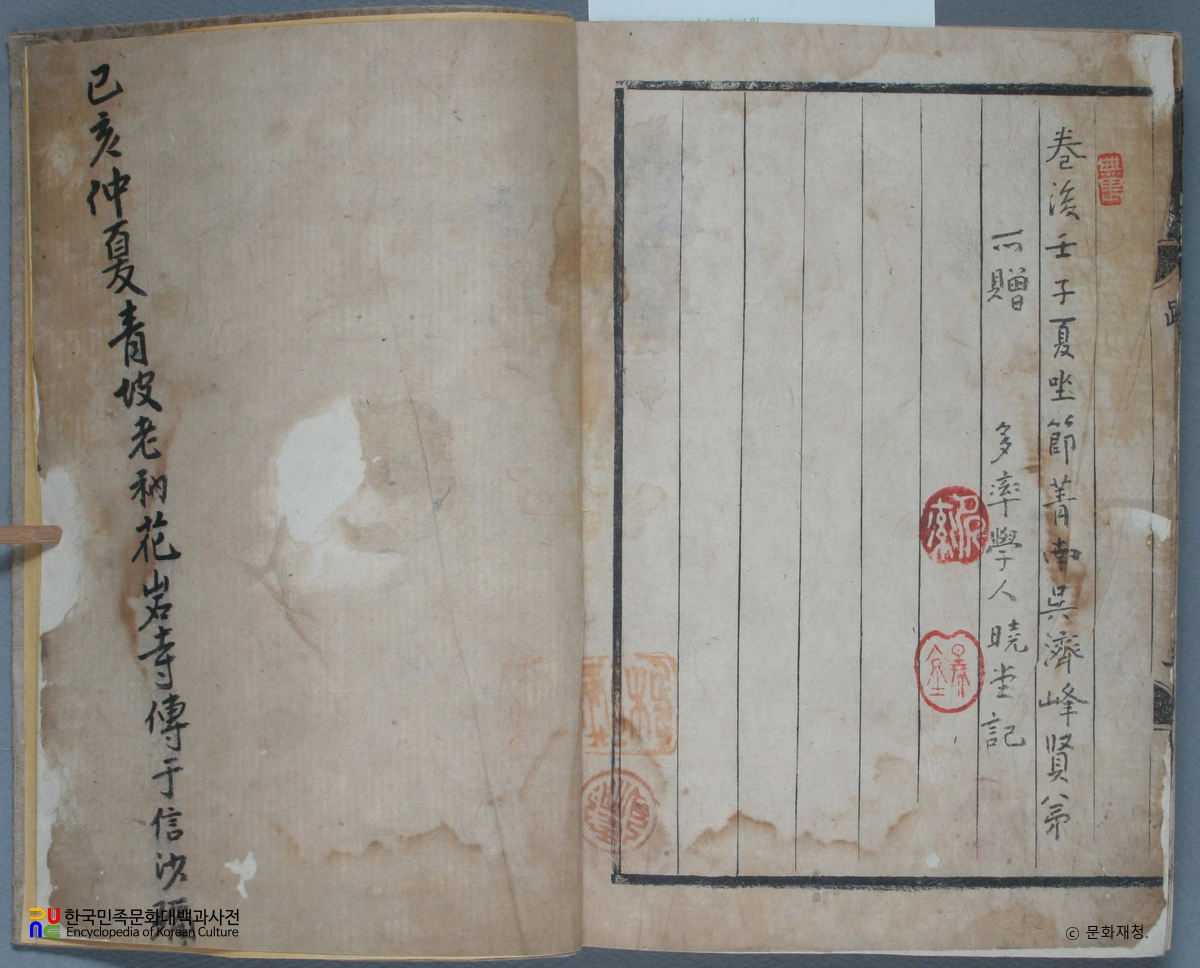 卷後壬子夏坐節菁南吳濟峰賢弟
所贈
多率學人曉堂記
己亥仲夏青坡老衲花岩寺傳于信沙彌
한국민족문화대백과사전
Encyclopedia of Korean Culture
ⓒ 문화재청.